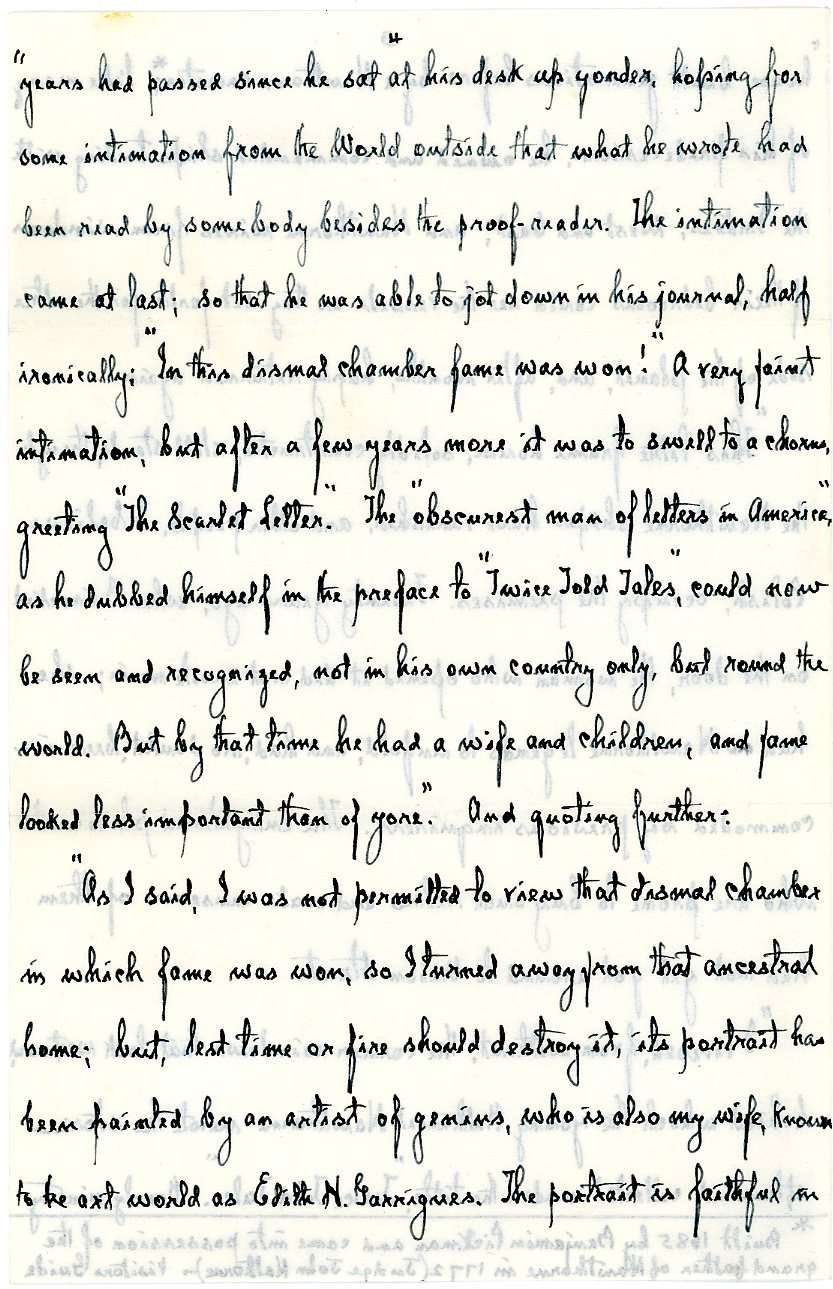 4
"years had passed since he sat at his desk up yonder, hoping for
some intimation from the World outside that what he wrote had
been read by somebody besides the proof-reader. The intimation
came at last; so that he was able to jot down in his journal, half
ironically; "In this dismal chamber fame was won!" A very faint
intimation, but after a few years more it was to swell to a chorus,
greeting "The Scarlet Letter." The "obscurest man of letters in America",
as he dubbed himself in the preface to "Twice Told Tales", could now
be seen and recognized, not in his own country only, but round the
world. But by that time he had a wife and children, and fame
looked less important than of yore." And quoting further:
"As I said, I was not permitted to view that dismal chamber
in which fame was won, so I turned away from that ancestral
home; but, lest time or fire should destroy it, its portrait has
been painted by an artist of genius, who is also my wife, known
to he art world as Edith N. Garrigues. The portrait is faithful in